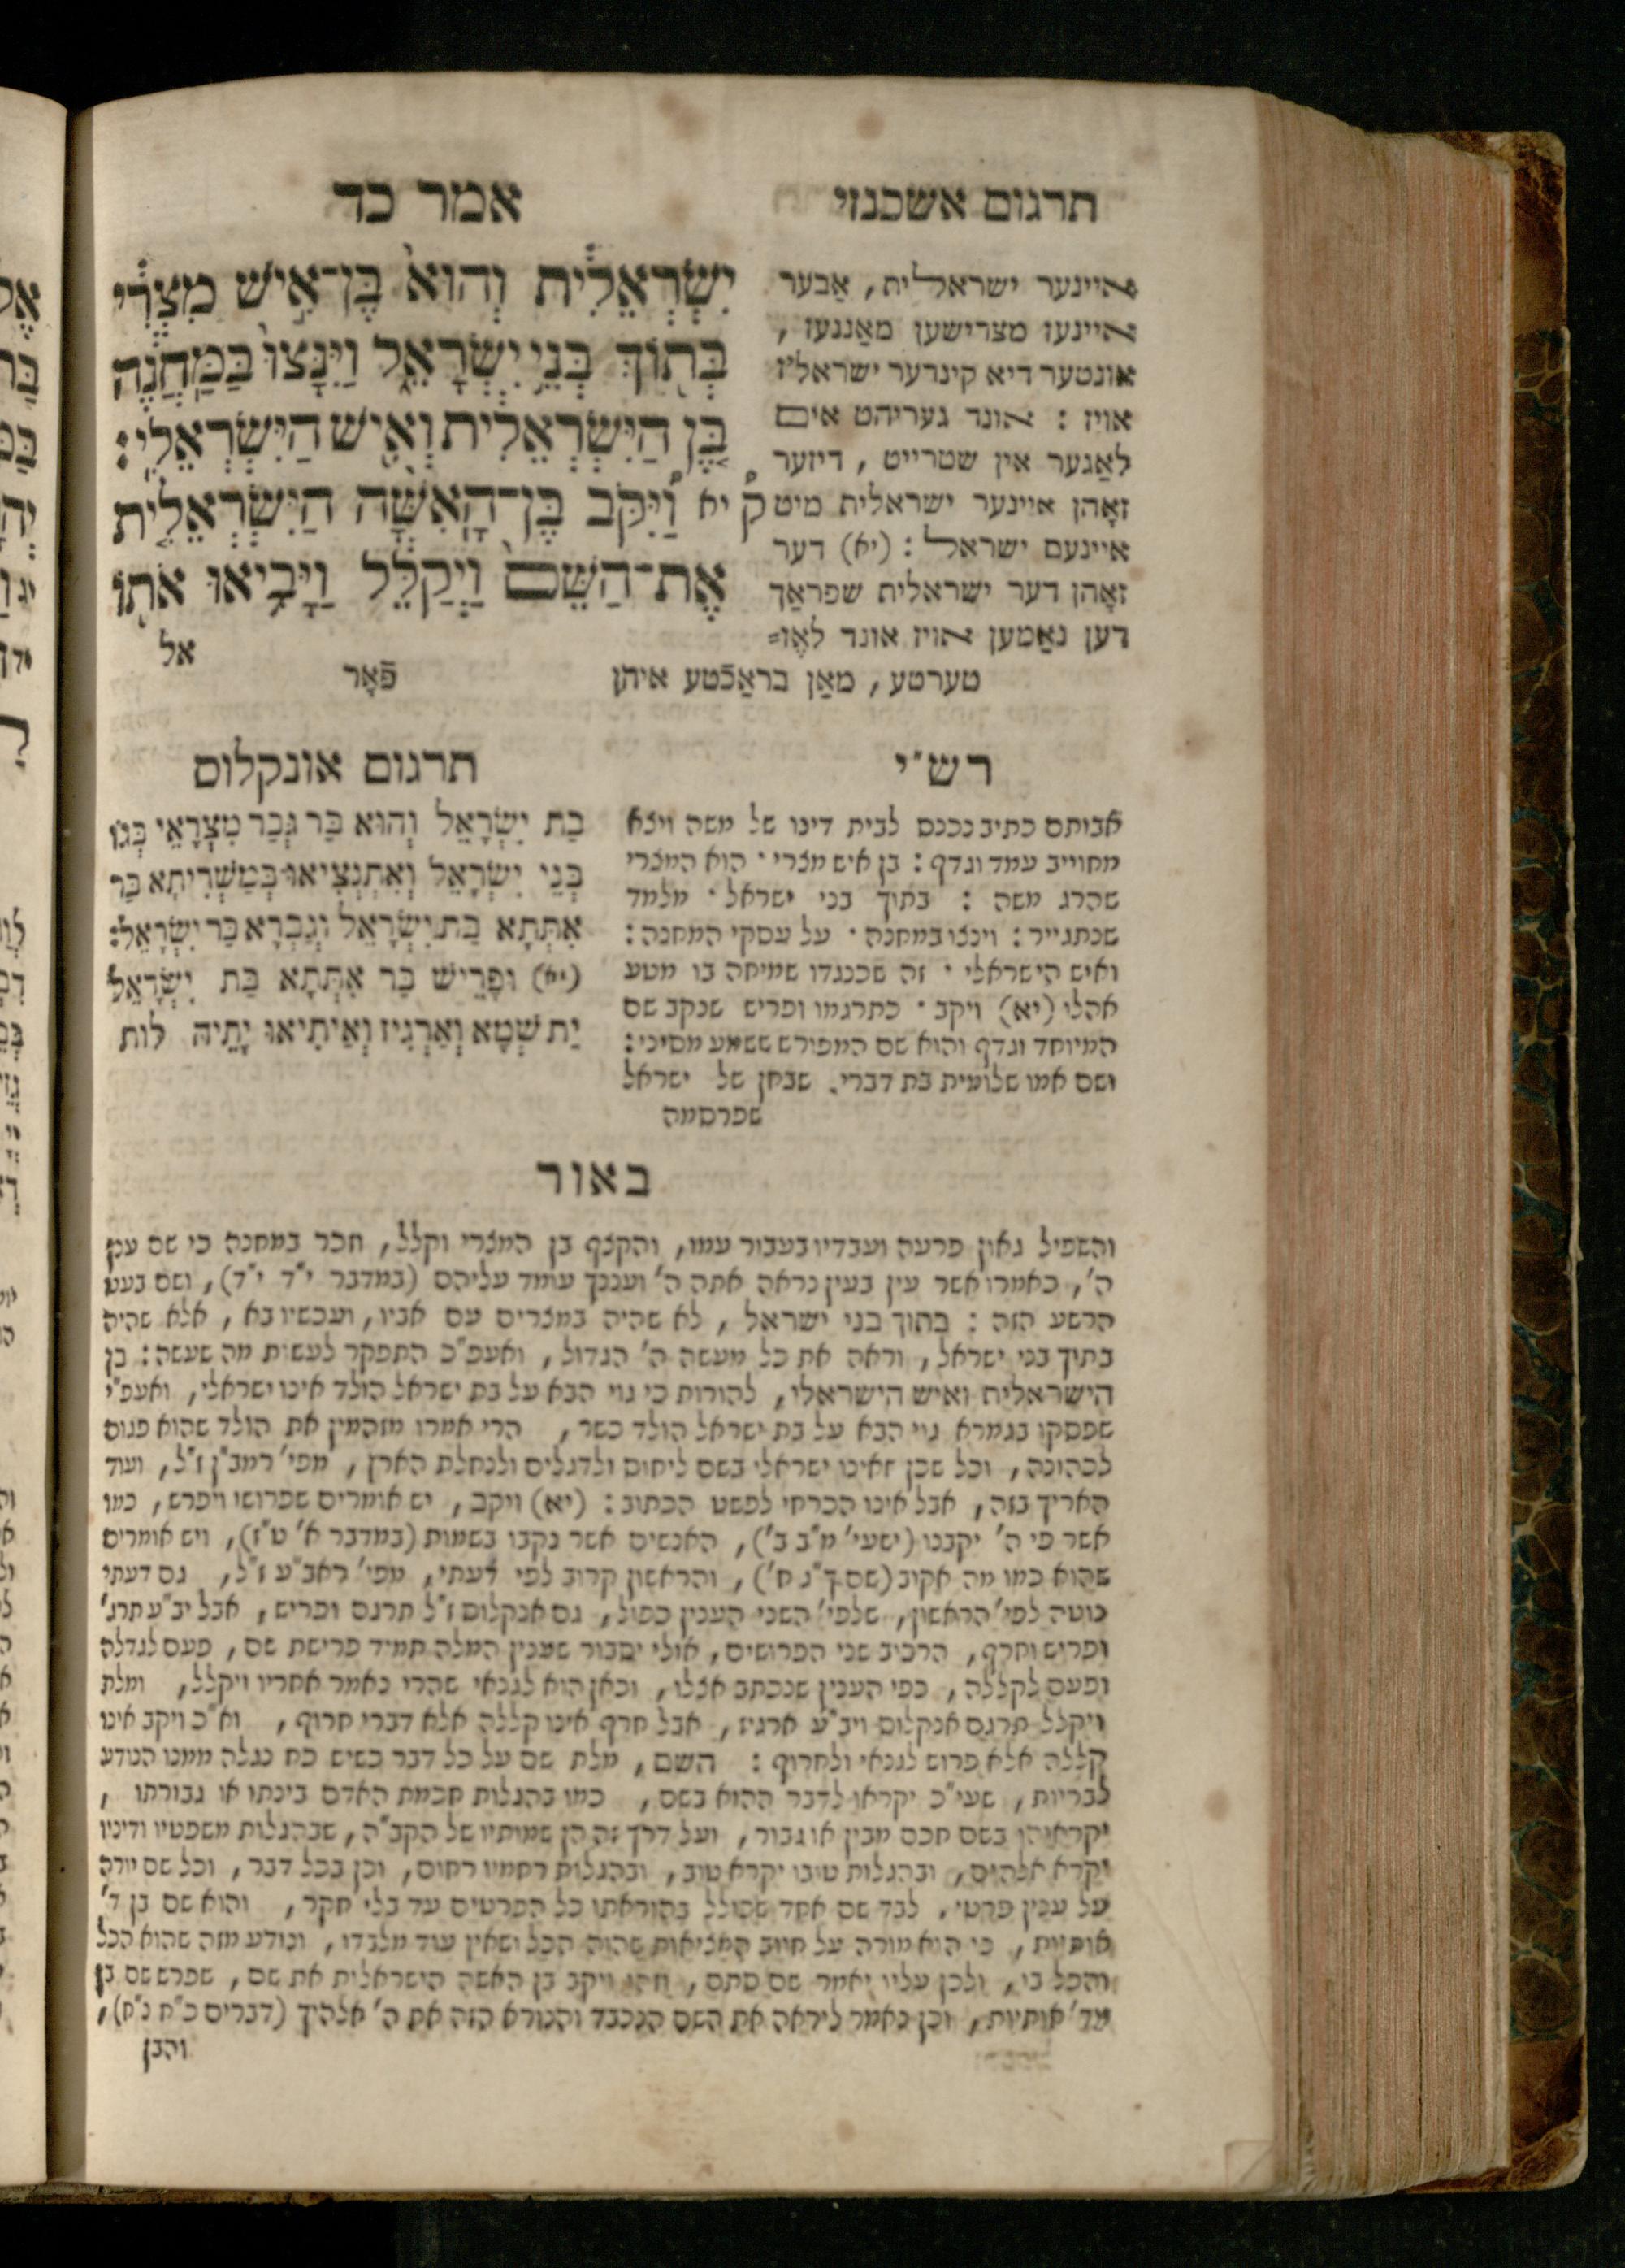 תרגום אשכנזי
אמר כד
איינער ישראלית, אַבער
איינעז מצרישען מאַננעז,
אונטער דיא קינדער ישראל'ז
אויז : אונד געריהט אים
לאַגער אין שטרייט, דיזער
זאָהן איינער ישראלית מיט
איינעם ישראל : (יא) דער
זאָהן דער ישראלית שפראַך
דען נאַמען אויז אונד לאֶז=
טערטע, מאַן בראַכֿטע איהן פֿאָר
יִשְׂרְאֵלִית וְהוּא בֶּן־אִישׁ מִצְרִי
בְּתוֹךְ בְּנֵי יִשְׂרָאֵל וַיִּנָּצוּ בַּמַּחֲנֶה
בֶּן הַיִּשְׂרְאֵלִית וְאִישׁ הַיִּשְׂרְאֵלִי:
ק יא וַיִּקֹּב בֶּן־הָאִשָּׁה הַיִּשְׂרְאֵלִית
אֶת־הַשֵּׁם וַיְקַלֵּל וַיָּבִיאוּ אֹתוֹ
אל
רש"י
אבותם כתיב נכנס לבית דינו של משה ויצא
מחוייב עמד וגדף : בן איש מצרי · הוא המצרי
שהרג משה : בתוך בני ישראל · מלמד
שנתגייר : וינצו במחנה · על עסקי המחנה :
ואיש הישראלי · זה שכנגדו שמיחה בו מטע
אהלו (יא) ויקב · כתרגמו ופריש שנקב שם
המיוחד וגדף והוא שם המפורש ששמע מסיני :
ושם אמו שלומית בת דברי. שבחן של ישראל
שפרסמה
תרגום אונקלוס
בַת יִשְׂרָאֵל וְהוּא בַּר גְּבַר מִצְרָאֵי בְּגוֹ
בְּנֵי יִשְׂרָאֵל וְאִתְנְצִיאוּ בְּמַשְׁרִיתָא בַּר
אִתְּתָא בַת יִשְׂרָאֵל וְגַבְרָא בַּר יִשְׂרָאֵל:
(יא) וּפָרֵישׁ בַּר אִתְּתָא בַּת יִשְׂרָאֵל
יַת שְׁמָא וְאַרְגִיז וְאַיְתִיאוּ יָתֵיהּ לות
באור
והשפיל גאון פרעה ועבדיו בעבור עמו, והקצף בן המצרי וקלל, חכר במחנה כי שם ענן
ה', כאמרו אשר עין בעין נראה אתה ה' ועננך עומד עליהם (במדבר י"ד י"ד), ושם בעט
הרשע הזה : בתוך בני ישראל, לא שהיה במצרים עם אביו, ועכשיו בא, אלא שהיה
בתוך בני ישראל, וראה את כל מעשה ה' הגדול, ואעפ"כ התפקר לעשות מה שעשה : בן
הישראלית ואיש הישראלי, להורות כי גוי הבא על בת ישראל הולד אינו ישראלי, ואעפ"י
שפסקו בגמרא גוי הבא על בת ישראל הולד כשר, הרי אמרו מזהמין את הולד שהוא פגום
לכהונה, וכל שכן שאינו ישראלי בשם ליחוס ולדגלים ולנחלת הארץ, מפי' רמב"ן ז"ל, ועוד
האריך בזה, אבל אינו הכרחי לפשט הכתוב : (יא) ויקב, יש אומרים שפרושו ויפרש, כמו
אשר פי ה' יקבנו (ישעי' מ"ב ב'), האנשים אשר נקבו בשמות (במדבר א' ט"ז), ויש אומרים
שהוא כמו מה אקוב (שם כ"ג ח'), והראשון קרוב לפי דעתי, מפי' ראב"ע ז"ל, גם דעתי
נוטה לפי' הראשון, שלפי' השני הענין כפול, גם אנקלוס ז"ל תרגם ופריש, אבל יב"ע תרג'
ופריש וחרף, הרכיב שני הפרושים, אולי יסבור שענין המלה תמיד פרישת שם, פעם לגדלה
ופעם לקללה, כפי הענין שנכתב אצלו, וכאן הוא לגנאי שהרי נאמר אחריו ויקלל, ומלת
ויקלל תרגם אנקלוס ויב"ע ארגיז, אבל חרף אינו קללה אלא דברי חרוף, וא"כ ויקב אינו
קללה אלא פרוש לגנאי ולחרוף : השם, מלת שם על כל דבר כשיש כח נגלה ממנו הנודע
לבריות, שעי"כ יקראו לדבר ההוא בשם, כמו בהגלות חכמת האדם בינתו או גבורתו,
יקראוהו בשם חכם מבין או גבור, ועל דרך זה הן שמותיו של הקב"ה, שבהגלות משפטיו ודיניו
יקרא אלהים, ובהגלות טובו יקרא טוב, ובהגלות רחמיו רחום, וכן בכל דבר, וכל שם יורה
על ענין פרטי. לבד שם אחד שהולל בהוראתו כל הפרטים עד בלי חקר, והוא שם בן ד'
אותיות, כי הוא מורה על חיוב המציאות שהוה הכל ושאין עוד מלבדו, ונודע מזה שהוא הכל
והכל בו, ולכן עליו יאמר שם סתם, וזהו ויקב בן האשה הישראלית את שם, שפרש שם בן
מד' אותיות, וכן נאמר ליראה את השם הנכבד והנורא הזה את ה' אלהיך (דברים כ"ח נ"ח),
והבן